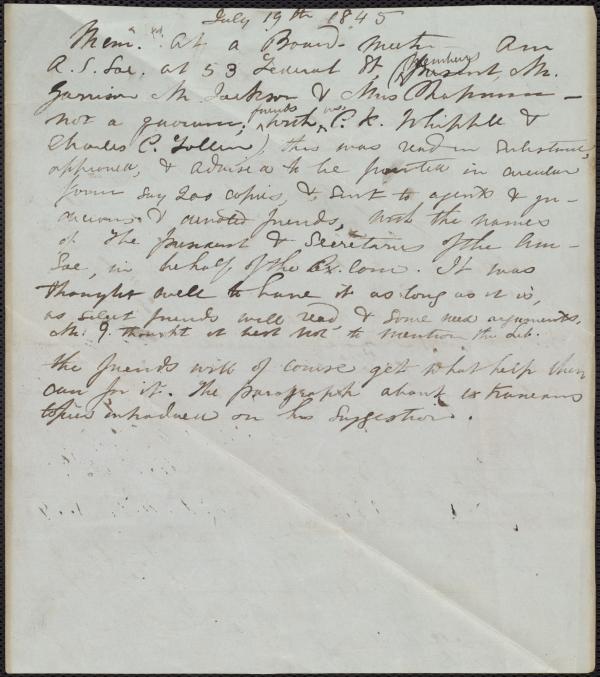 July 19th 1845
Mem. At a Board meet Am
A. S. Soc. at 53 Federal St, (members present, Mr.
Garrison Mr Jackson & Mrs Chapman –
not a quorum; friends with, C. K. Whipple &
Charles C. Follen) this was read in substance,
approved, & advised to be printed in circular
form say 200 copies, & sent to agents & ju-
dicious & devoted friends, with the names
of the President & Secretaries of the Am–
Soc, in behalf of the Ex. Com. It was
thought well to have it as long as it is,
as select friends will read & some need arguments.
Mr. J. thought it best not to mention the Lib.
the friends will of course get what help they
can for it. The paragraph about extraneous
topics introduced on his suggestion.